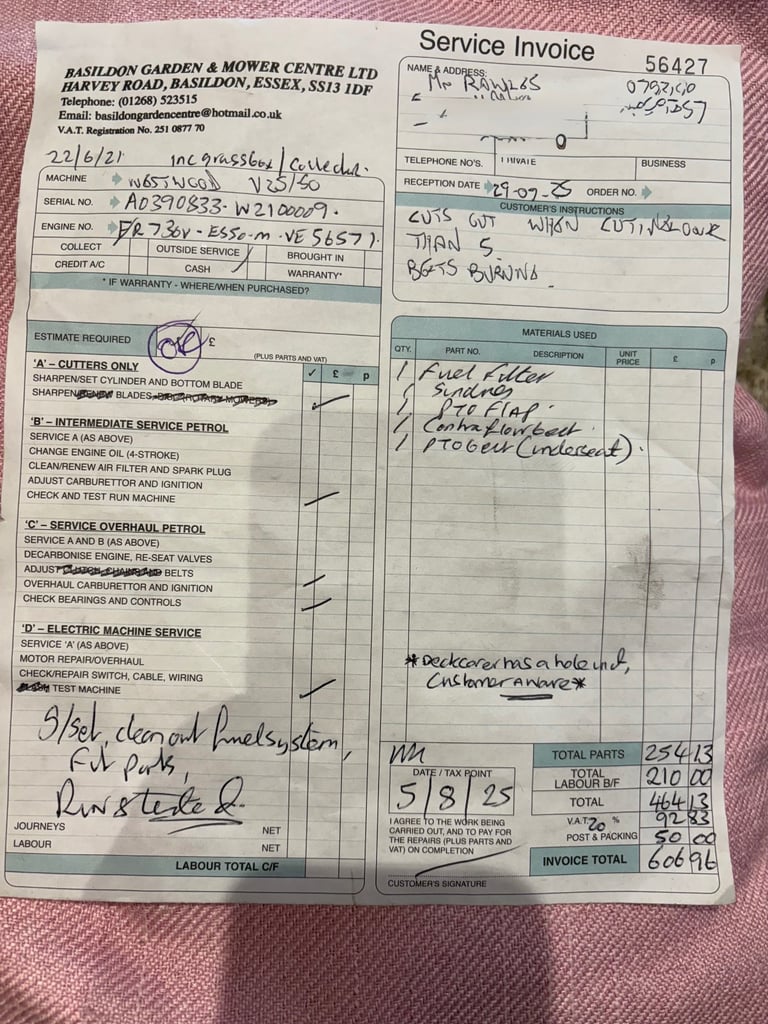 Service Invoice
56427
BASILDON GARDEN & MOWER CENTRE LTD
HARVEY ROAD, BASILDON, ESSEX, SS13 1DF
Telephone: (01268) 523515
Email: basildongardencentre@hotmail.co.uk
V.A.T. Registration No. 251 0877 70
22/6/21 inc grassbox / Collector.
MACHINE WESTWOOD V25/50
SERIAL NO. A0390833-W2100009.
ENGINE NO. FR730V-ES50-M-VE56571
COLLECT OUTSIDE SERVICE BROUGHT IN
CREDIT A/C CASH WARRANTY*
* IF WARRANTY - WHERE/WHEN PURCHASED?
NAME & ADDRESS:
Mr RAWLES
TELEPHONE NO'S. PRIVATE BUSINESS
RECEPTION DATE 29-07-25 ORDER NO.
CUSTOMER'S INSTRUCTIONS
CUTS OUT WHEN
THAN 5
BELTS BURNING
ESTIMATE REQUIRED £
(PLUS PARTS AND VAT)
'A' – CUTTERS ONLY ✓ £ p
SHARPEN/SET CYLINDER AND BOTTOM BLADE
SHARPEN/RENEW BLADES
'B' – INTERMEDIATE SERVICE PETROL
SERVICE A (AS ABOVE)
CHANGE ENGINE OIL (4-STROKE)
CLEAN/RENEW AIR FILTER AND SPARK PLUG
ADJUST CARBURETTOR AND IGNITION
CHECK AND TEST RUN MACHINE
'C' – SERVICE OVERHAUL PETROL
SERVICE A AND B (AS ABOVE)
DECARBONISE ENGINE, RE-SEAT VALVES
ADJUST BELTS
OVERHAUL CARBURETTOR AND IGNITION
CHECK BEARINGS AND CONTROLS
'D' – ELECTRIC MACHINE SERVICE
SERVICE 'A' (AS ABOVE)
MOTOR REPAIR/OVERHAUL
CHECK/REPAIR SWITCH, CABLE, WIRING
TEST MACHINE
S/set, clean out fuel system,
Fit parts,
Run & tested
JOURNEYS NET
LABOUR NET
LABOUR TOTAL C/F
MATERIALS USED
QTY. PART NO. DESCRIPTION UNIT PRICE £ p
1 Fuel Filter
Sundries
1 PTO FLAP.
1 Contraflow belt.
1 PTO Belt (underseat).
*Deck cover has a hole in it,
Customer Aware*
DATE / TAX POINT
5/8/25
I AGREE TO THE WORK BEING
CARRIED OUT, AND TO PAY FOR
THE REPAIRS (PLUS PARTS AND
VAT) ON COMPLETION
CUSTOMER'S SIGNATURE
TOTAL PARTS 254 13
TOTAL LABOUR B/F 210 00
TOTAL 464 13
V.A.T. 20 % 92 83
POST & PACKING 50 00
INVOICE TOTAL 606 96